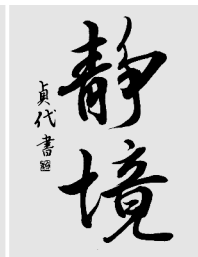 静境
貞代書